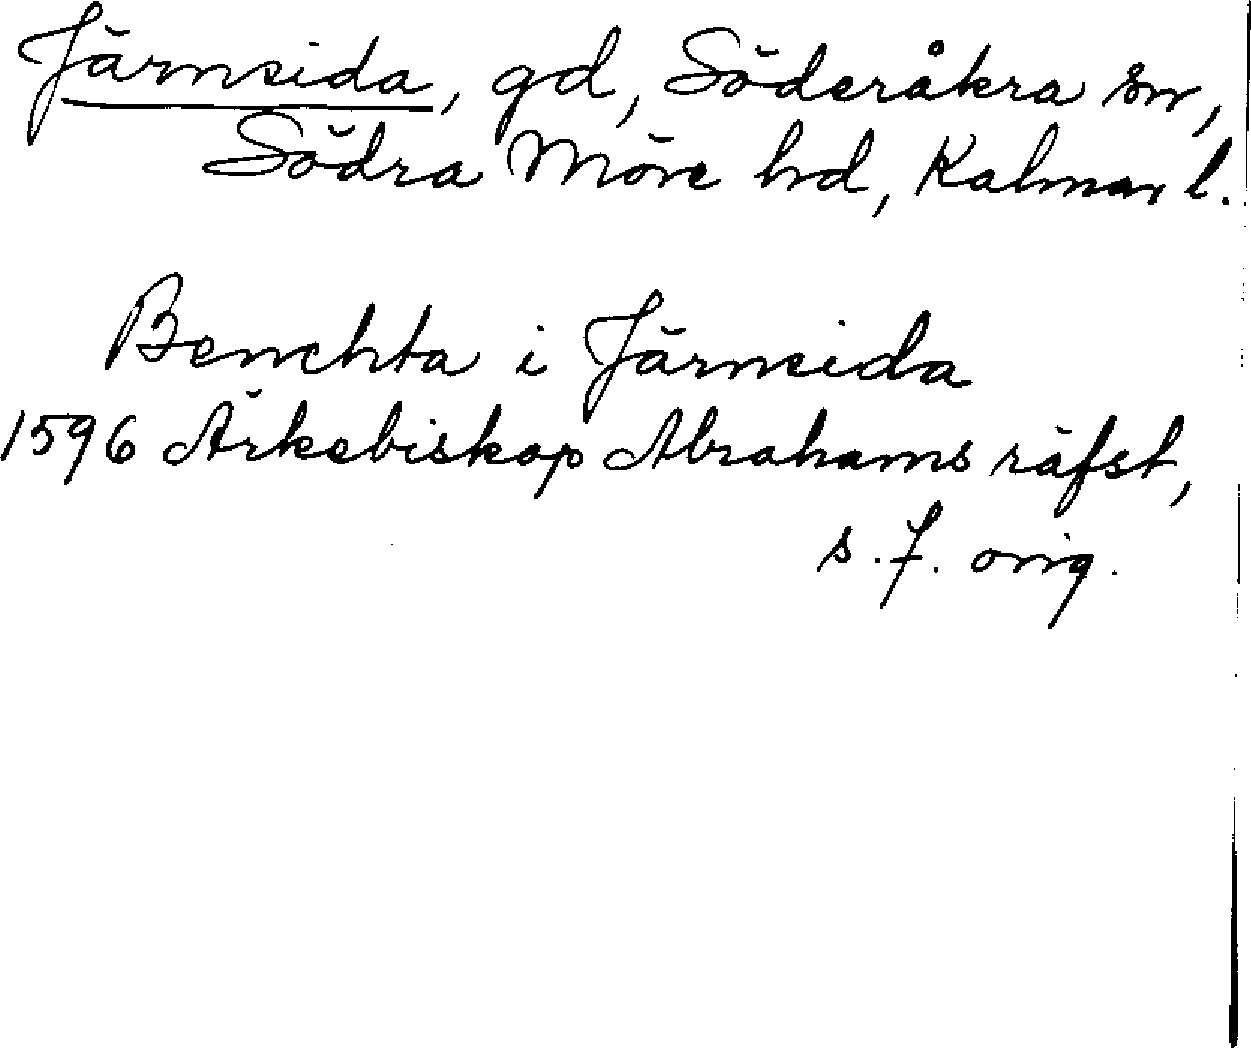 Järnsida, gd, Söderåkra sn,
Södra Möre hd, Kalmar l.
Benchta i Järnsida
1596 Ärkebiskop Abrahams räfst,
s. 7. orig.